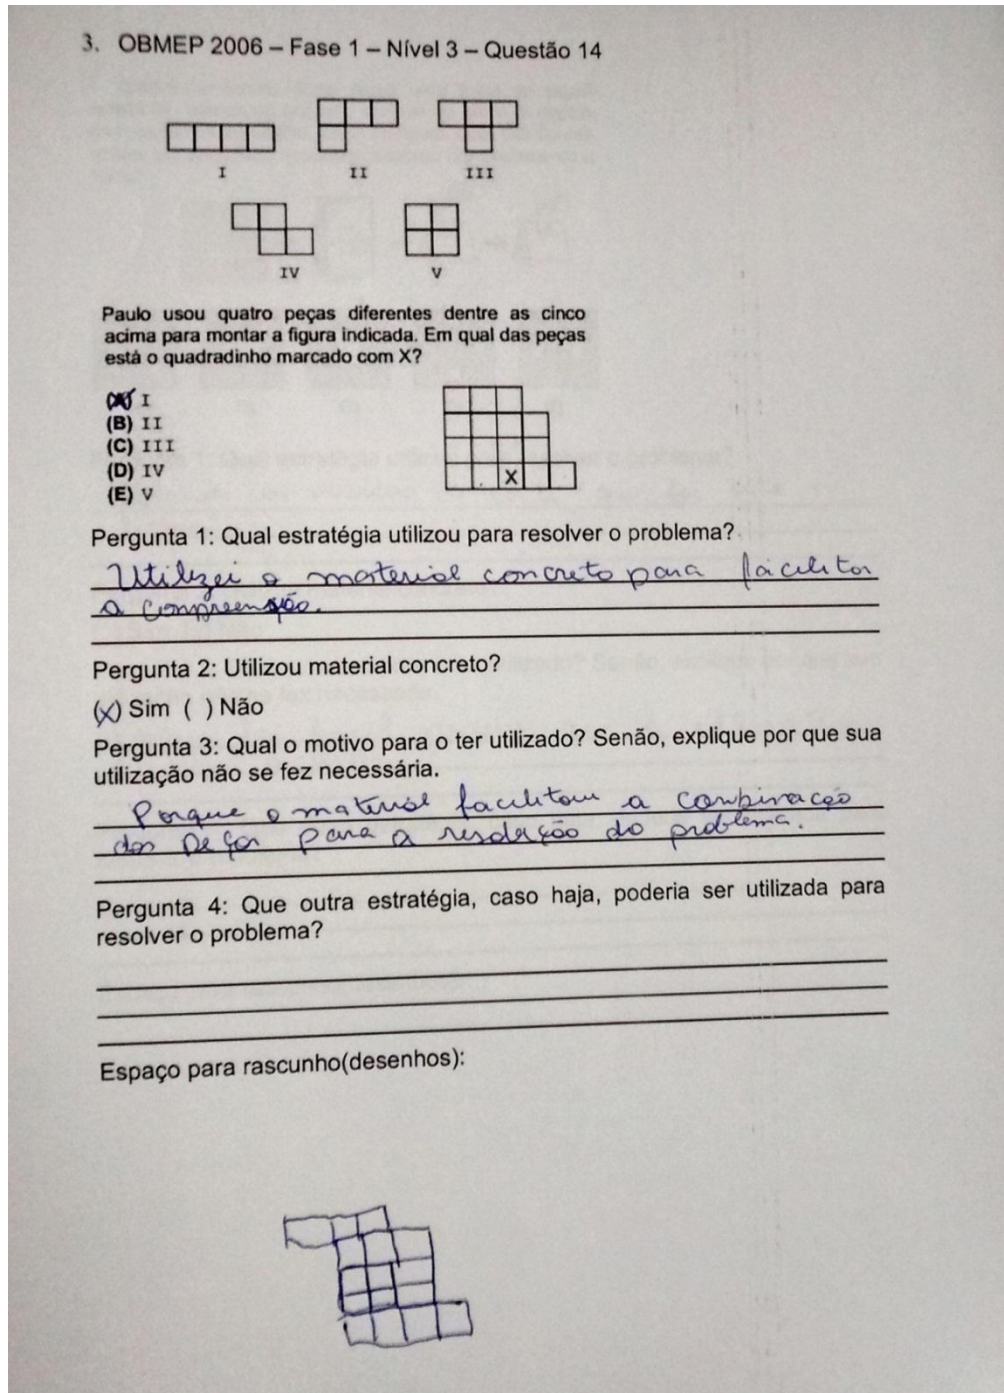 3. OBMEP 2006 – Fase 1 – Nível 3 – Questão 14
I II III
IV V
Paulo usou quatro peças diferentes dentre as cinco
acima para montar a figura indicada. Em qual das peças
está o quadradinho marcado com X?
(A) I
(B) II
(C) III
(D) IV
(E) V
X
Pergunta 1: Qual estratégia utilizou para resolver o problema?
Utilizei o material concreto para facilitar
a compreensão.
Pergunta 2: Utilizou material concreto?
(X) Sim ( ) Não
Pergunta 3: Qual o motivo para o ter utilizado? Senão, explique por que sua
utilização não se fez necessária.
Porque o material facilitou a combinação
das peças para a resolução do problema.
Pergunta 4: Que outra estratégia, caso haja, poderia ser utilizada para
resolver o problema?
Espaço para rascunho(desenhos):